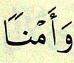 وَأَمْنًا